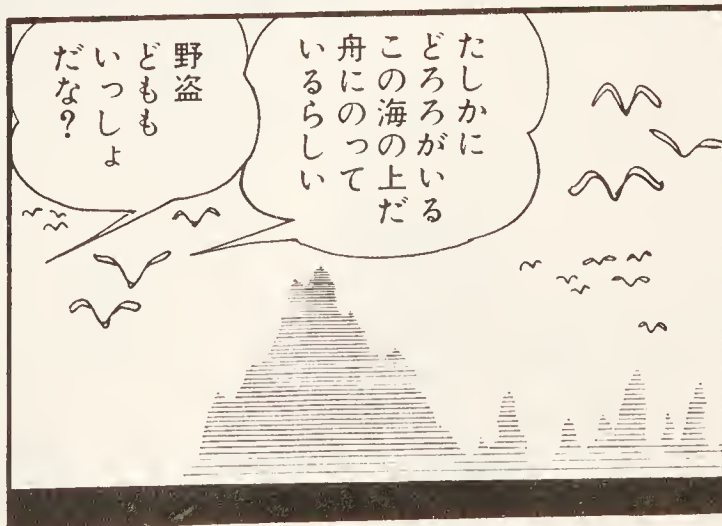 たしかに
どろろがいる
この海の上だ
舟にのって
いるらしい
野盗
どもも
いっしょ
だな?